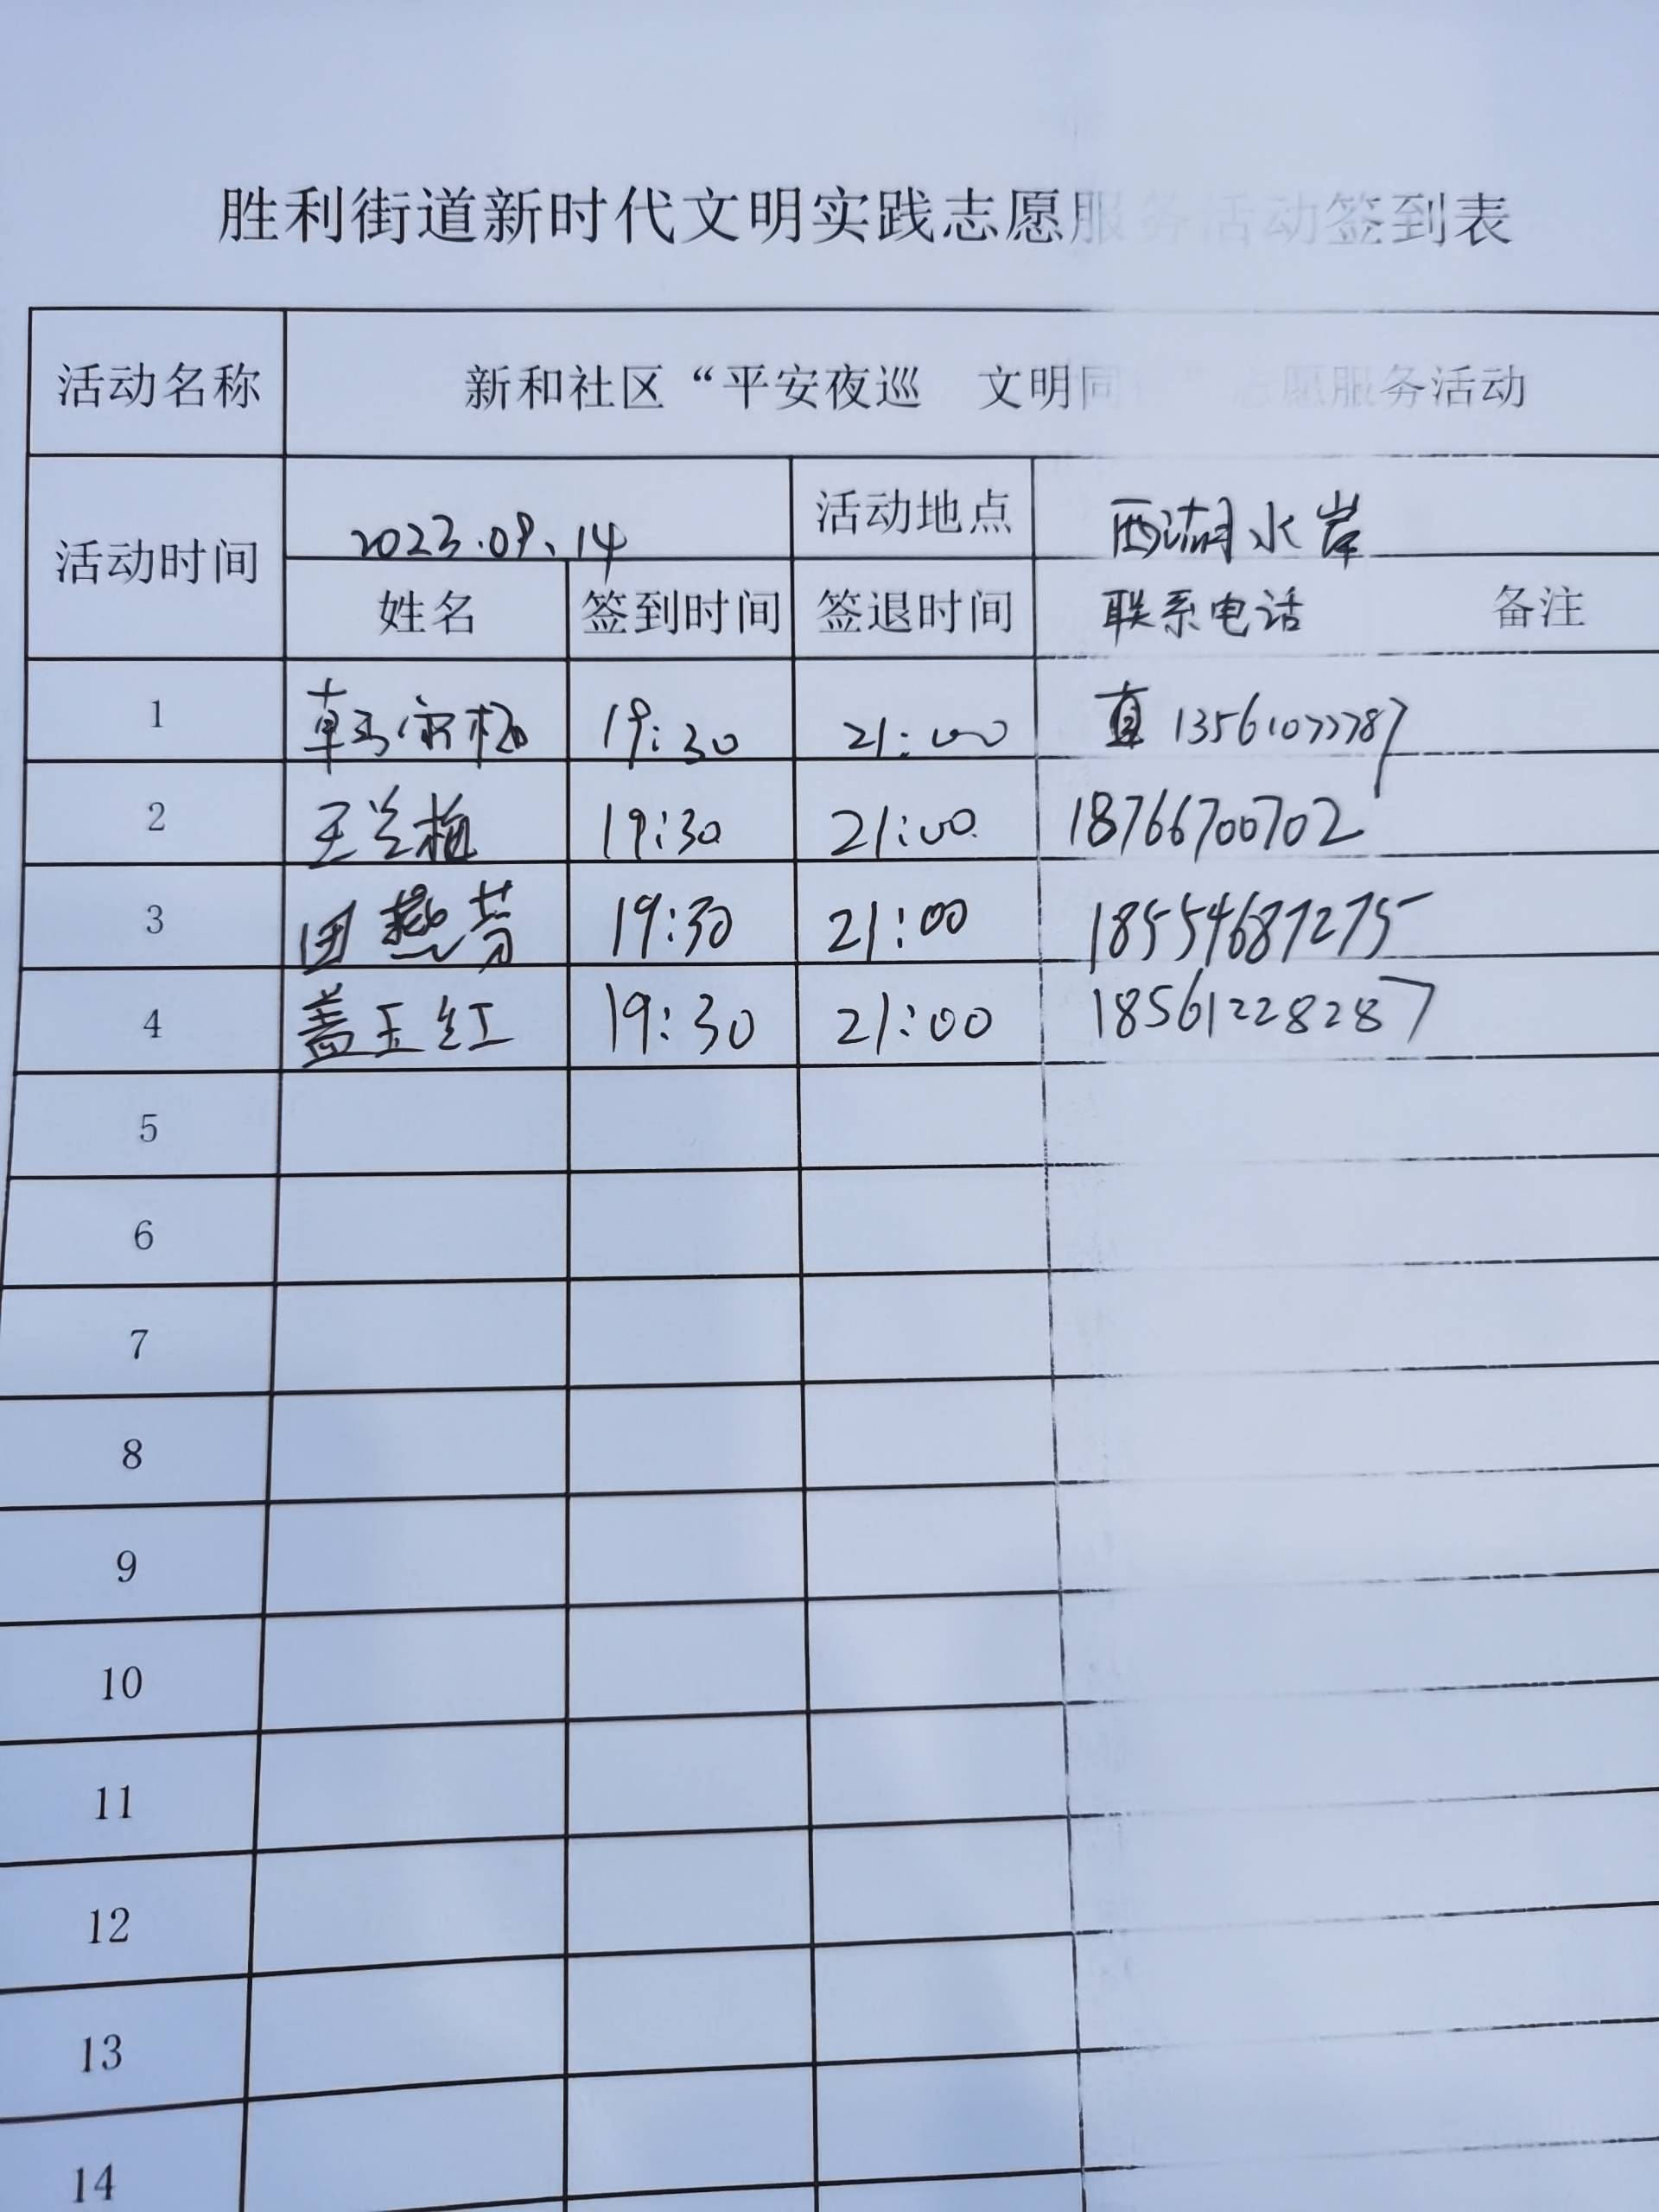 胜利街道新时代文明实践志愿服务活动签到表
活动名称 新和社区“平安夜巡 文明同行”志愿服务活动
活动时间 2023.09.14 活动地点 西湖水岸
姓名 签到时间 签退时间 联系电话 备注
1 19:30 21:00 13561077787
2 王兰梅 19:30 21:00 18766700702
3 田燕芳 19:30 21:00 18554687275
4 盖玉红 19:30 21:00 18561228287
5
6
7
8
9
10
11
12
13
14